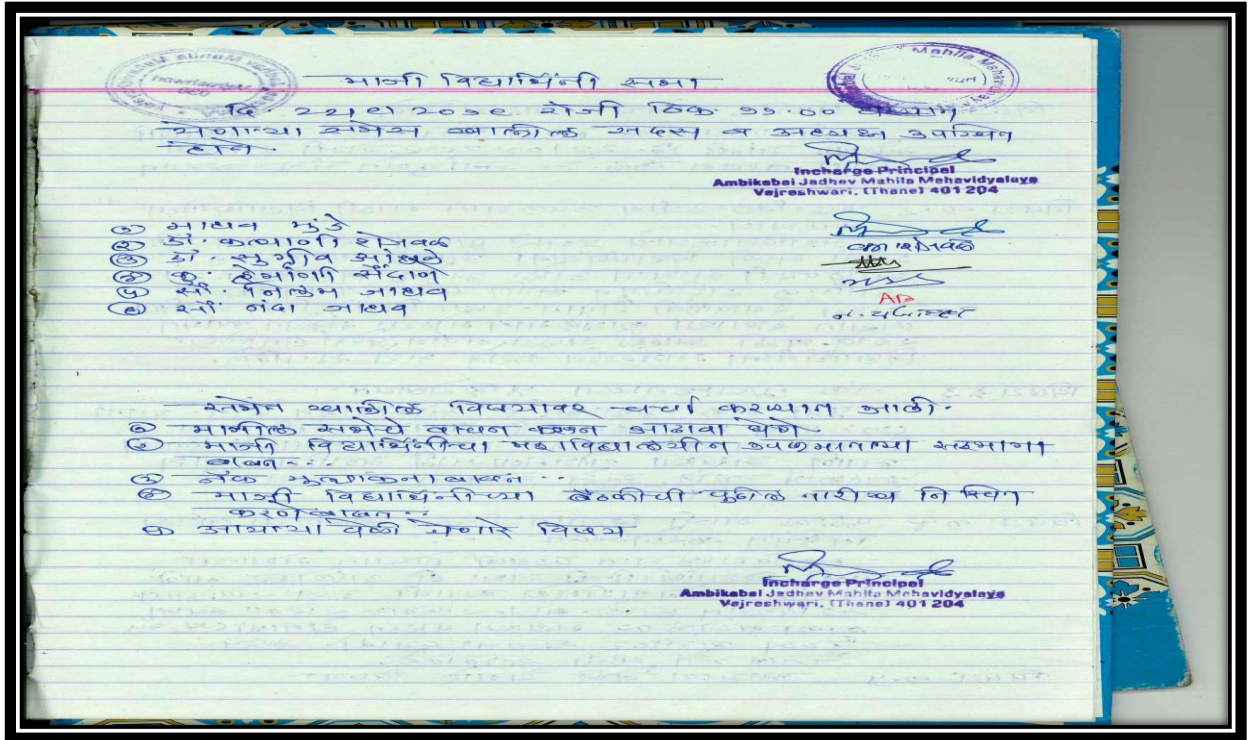 माजी विद्यार्थिनी सभा
दि २२।८।२०१९ रोजी ठिक ११.००
येणाऱ्या सभेस खालील सदस्य व अध्यक्ष उपस्थित
होते.
Incharge Principal
Ambikabai Jadhav Mahila Mahavidyalaya
Vajreshwari, (Thane) 401 204
१ माधव मुंडे
२ डॉ. कल्पना शेजवळ
३ डॉ.
४ कु.
५ सौ. निलम जाधव
६ सौ नंदा जाधव
सभेत खालील विषयावर चर्चा करण्यात आली.
१ मागील सभेचे वाचन करून आढावा घेणे
२ माजी विद्यार्थिनींचा महाविद्यालयीन उपक्रमातल्या सहभागा
बाबत
३ नॅक मुल्यांकनाबाबत
४ माजी विद्यार्थिनींच्या बैठकीची पुढील तारीख निश्चित
करणेबाबत
५ आयत्या वेळी येणारे विषय
Incharge Principal
Ambikabai Jadhav Mahila Mahavidyalaya
Vajreshwari, (Thane) 401 204